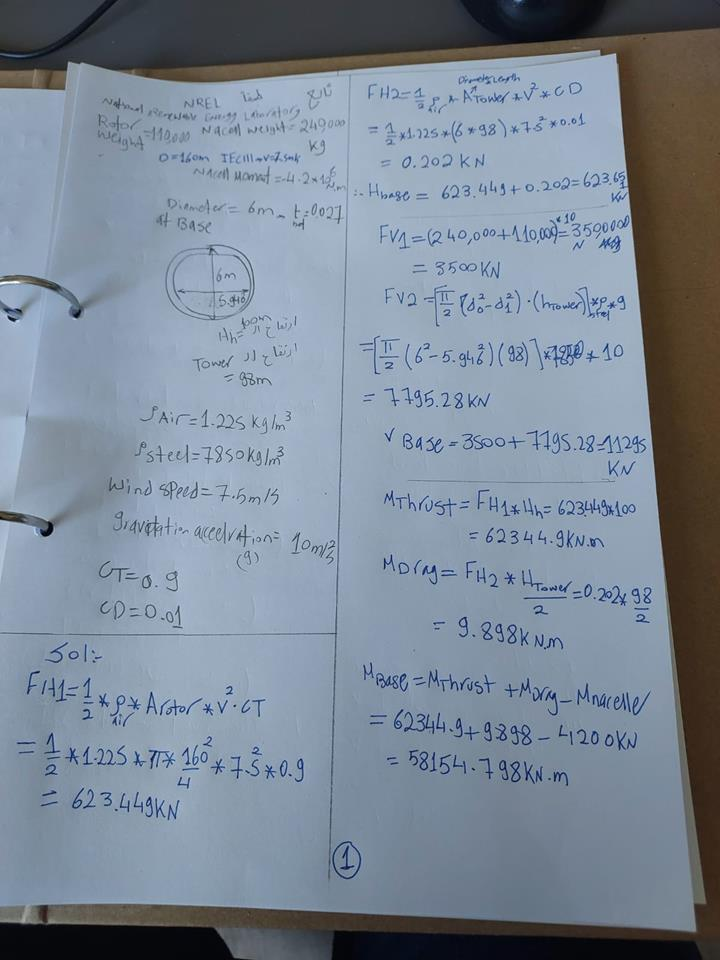 NREL لهنقا تابع
National Renewable Energy Laboratory
Rotor weight=110,000 Nacell weight=249,000 kg
D=160m IECIII→V=7.5m/s
Nacell Moment=-4.2*10^6 N.m
Diameter at Base = 6m - t=0.027
6m
5.946
Hh=100m ارتفاع ال
Tower ارتفاع ال
=98m
ρAir=1.225 kg/m³
ρsteel=7850kg/m³
Wind speed=7.5m/s
gravitation accelration= 10m/s²
(g)
CT=0.9
CD=0.01
Sol:-
FH1=1/2 *ρair* Arotor *V²·CT
=1/2 *1.225*π*160²/4 *7.5²*0.9
= 623.449KN
Diameter*Length
FH2=1/2 ρair * ATower *V²*CD
=1/2*1.225*(6*98)*7.5²*0.01
= 0.202 KN
∴ Hbase = 623.449+0.202=623.651 KN
FV1=(240,000+110,000)*10=3500000 N
= 3500KN
FV2=[π/2 (do²-d1²)·(hTower)]*ρsteel*g
=[π/2 (6²-5.946²)(98)]*7850*10
= 7795.28KN
V Base=3500+7795.28=11295 KN
MThrust=FH1*Hh=623.449*100
=62344.9KN.m
MDrag=FH2*HTower/2=0.202*98/2
= 9.898KN.m
MBase=MThrust+MDrag-Mnacelle
=62344.9+9.898-4200KN
=58154.798KN.m
1